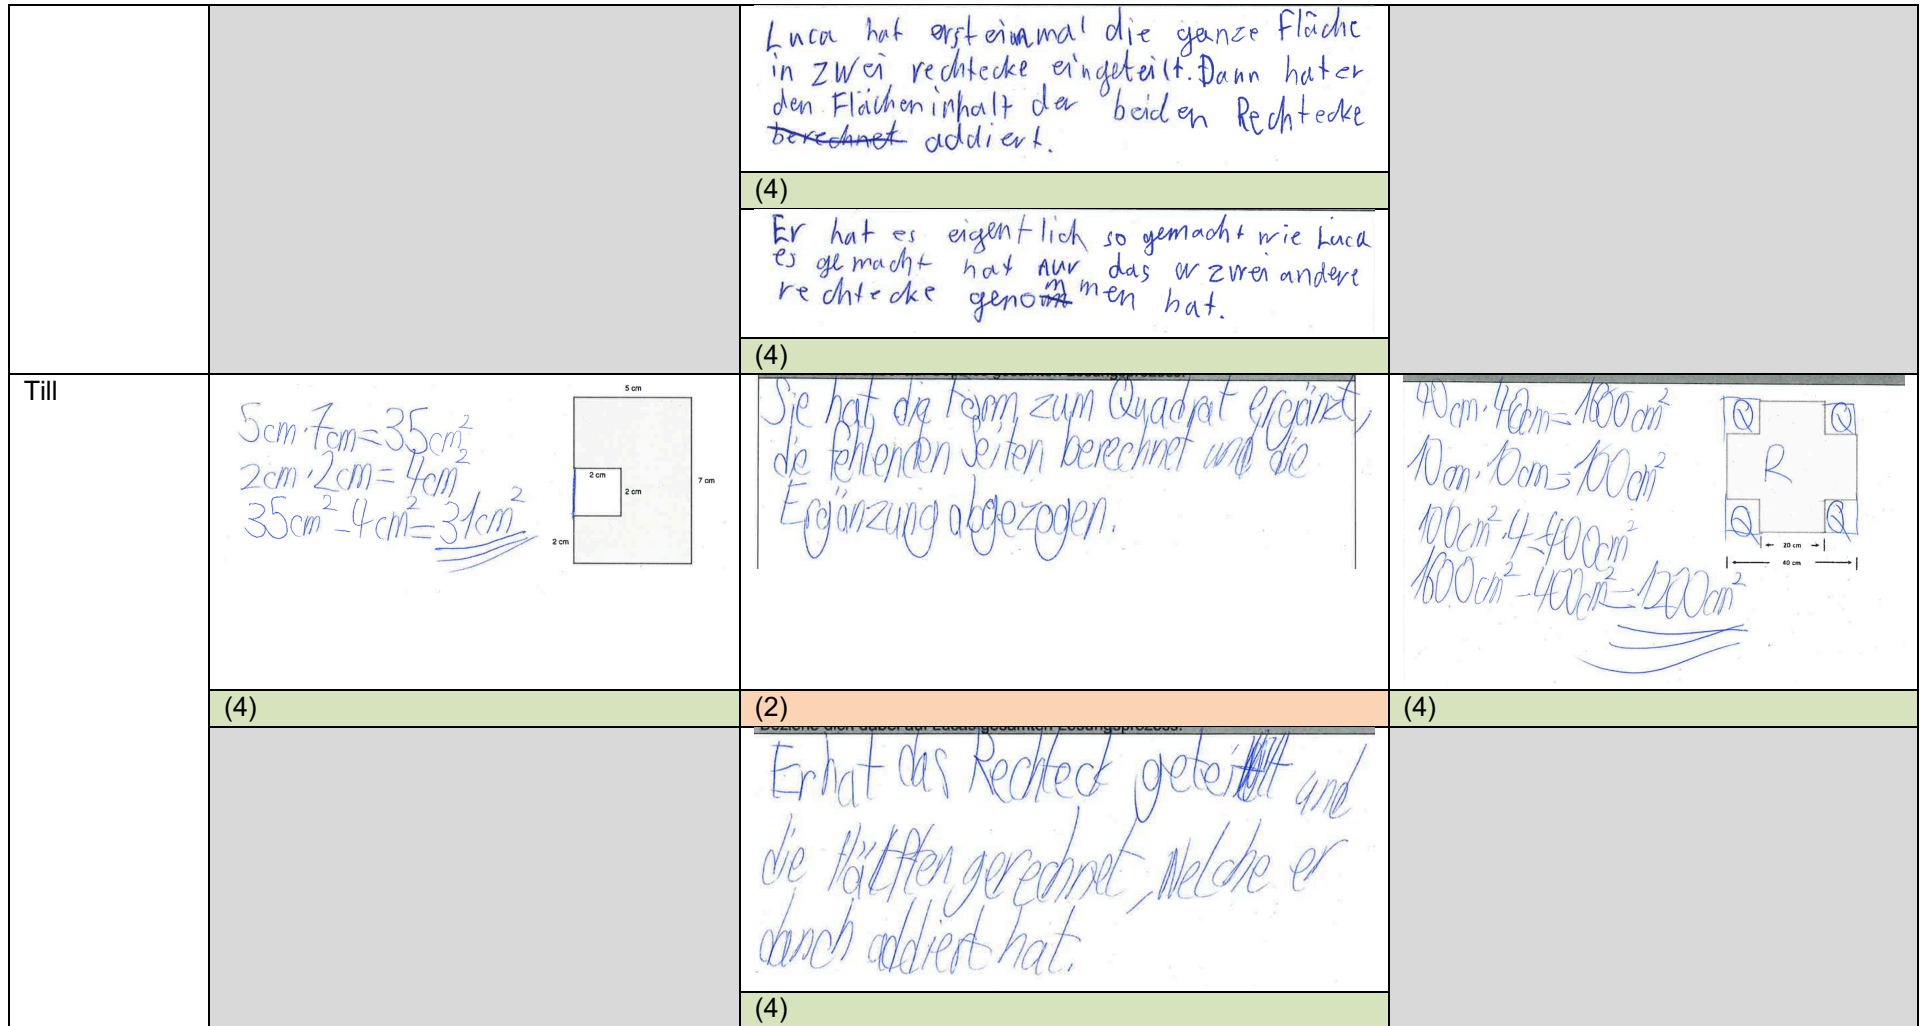 Luca hat ersteinmal die ganze Fläche
in zwei rechtecke eingeteilt. Dann hat er
den Flächeninhalt der beiden Rechtecke
berechnet addiert.
(4)
Er hat es eigentlich so gemacht wie Luca
es gemacht hat nur das er zwei andere
rechtecke genommen hat.
(4)
Till
5cm·7cm=35cm²
2cm·2cm=4cm²
35cm²-4cm²=31cm²
5 cm
2 cm
2 cm
7 cm
2 cm
(4)
Sie hat die Form zum Quadrat ergänzt,
die fehlenden Seiten berechnet und die
Ergänzung abgezogen.
(2)
40cm·40cm=1600cm²
10cm·10cm=100cm²
100cm²·4=400cm²
1600cm²-400cm²=1200cm²
Q Q
R
Q Q
20 cm
40 cm
(4)
Beziehe dich dabei auf Lucas gesamten Lösungsprozess.
Er hat das Rechteck geteilt und
die Hälften gerechnet, Welche er
danch addiert hat.
(4)